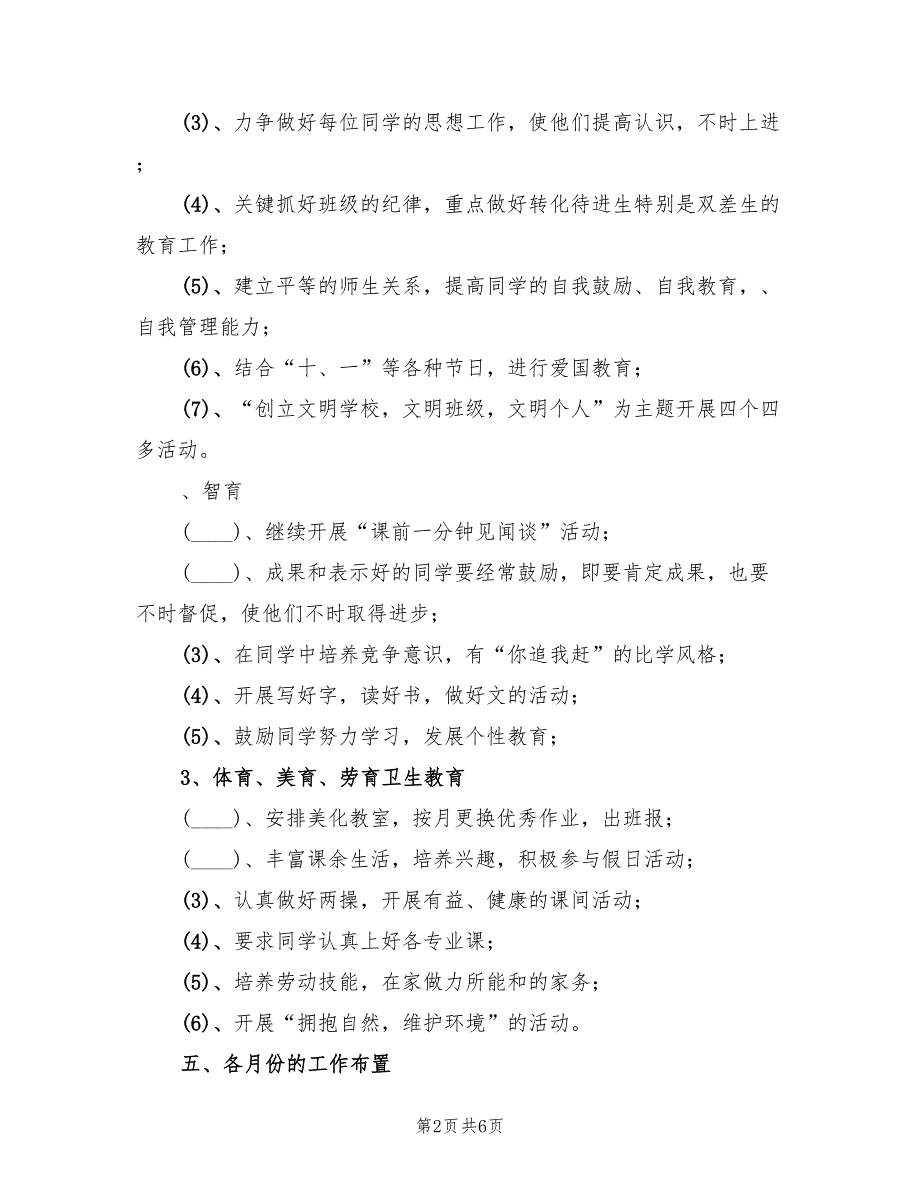 (3)、力争做好每位同学的思想工作，使他们提高认识，不时上进
；
(4)、关键抓好班级的纪律，重点做好转化待进生特别是双差生的
教育工作；
(5)、建立平等的师生关系，提高同学的自我鼓励、自我教育，、
自我管理能力；
(6)、结合“十、一”等各种节日，进行爱国教育；
(7)、“创立文明学校，文明班级，文明个人”为主题开展四个四
多活动。
、智育
(____)、继续开展“课前一分钟见闻谈”活动；
(____)、成果和表示好的同学要经常鼓励，即要肯定成果，也要
不时督促，使他们不时取得进步；
(3)、在同学中培养竞争意识，有“你追我赶”的比学风格；
(4)、开展写好字，读好书，做好文的活动；
(5)、鼓励同学努力学习，发展个性教育；
3、体育、美育、劳育卫生教育
(____)、安排美化教室，按月更换优秀作业，出班报；
(____)、丰富课余生活，培养兴趣，积极参与假日活动；
(3)、认真做好两操，开展有益、健康的课间活动；
(4)、要求同学认真上好各专业课；
(5)、培养劳动技能，在家做力所能和的家务；
(6)、开展“拥抱自然，维护环境”的活动。
五、各月份的工作布置
第2页共6页